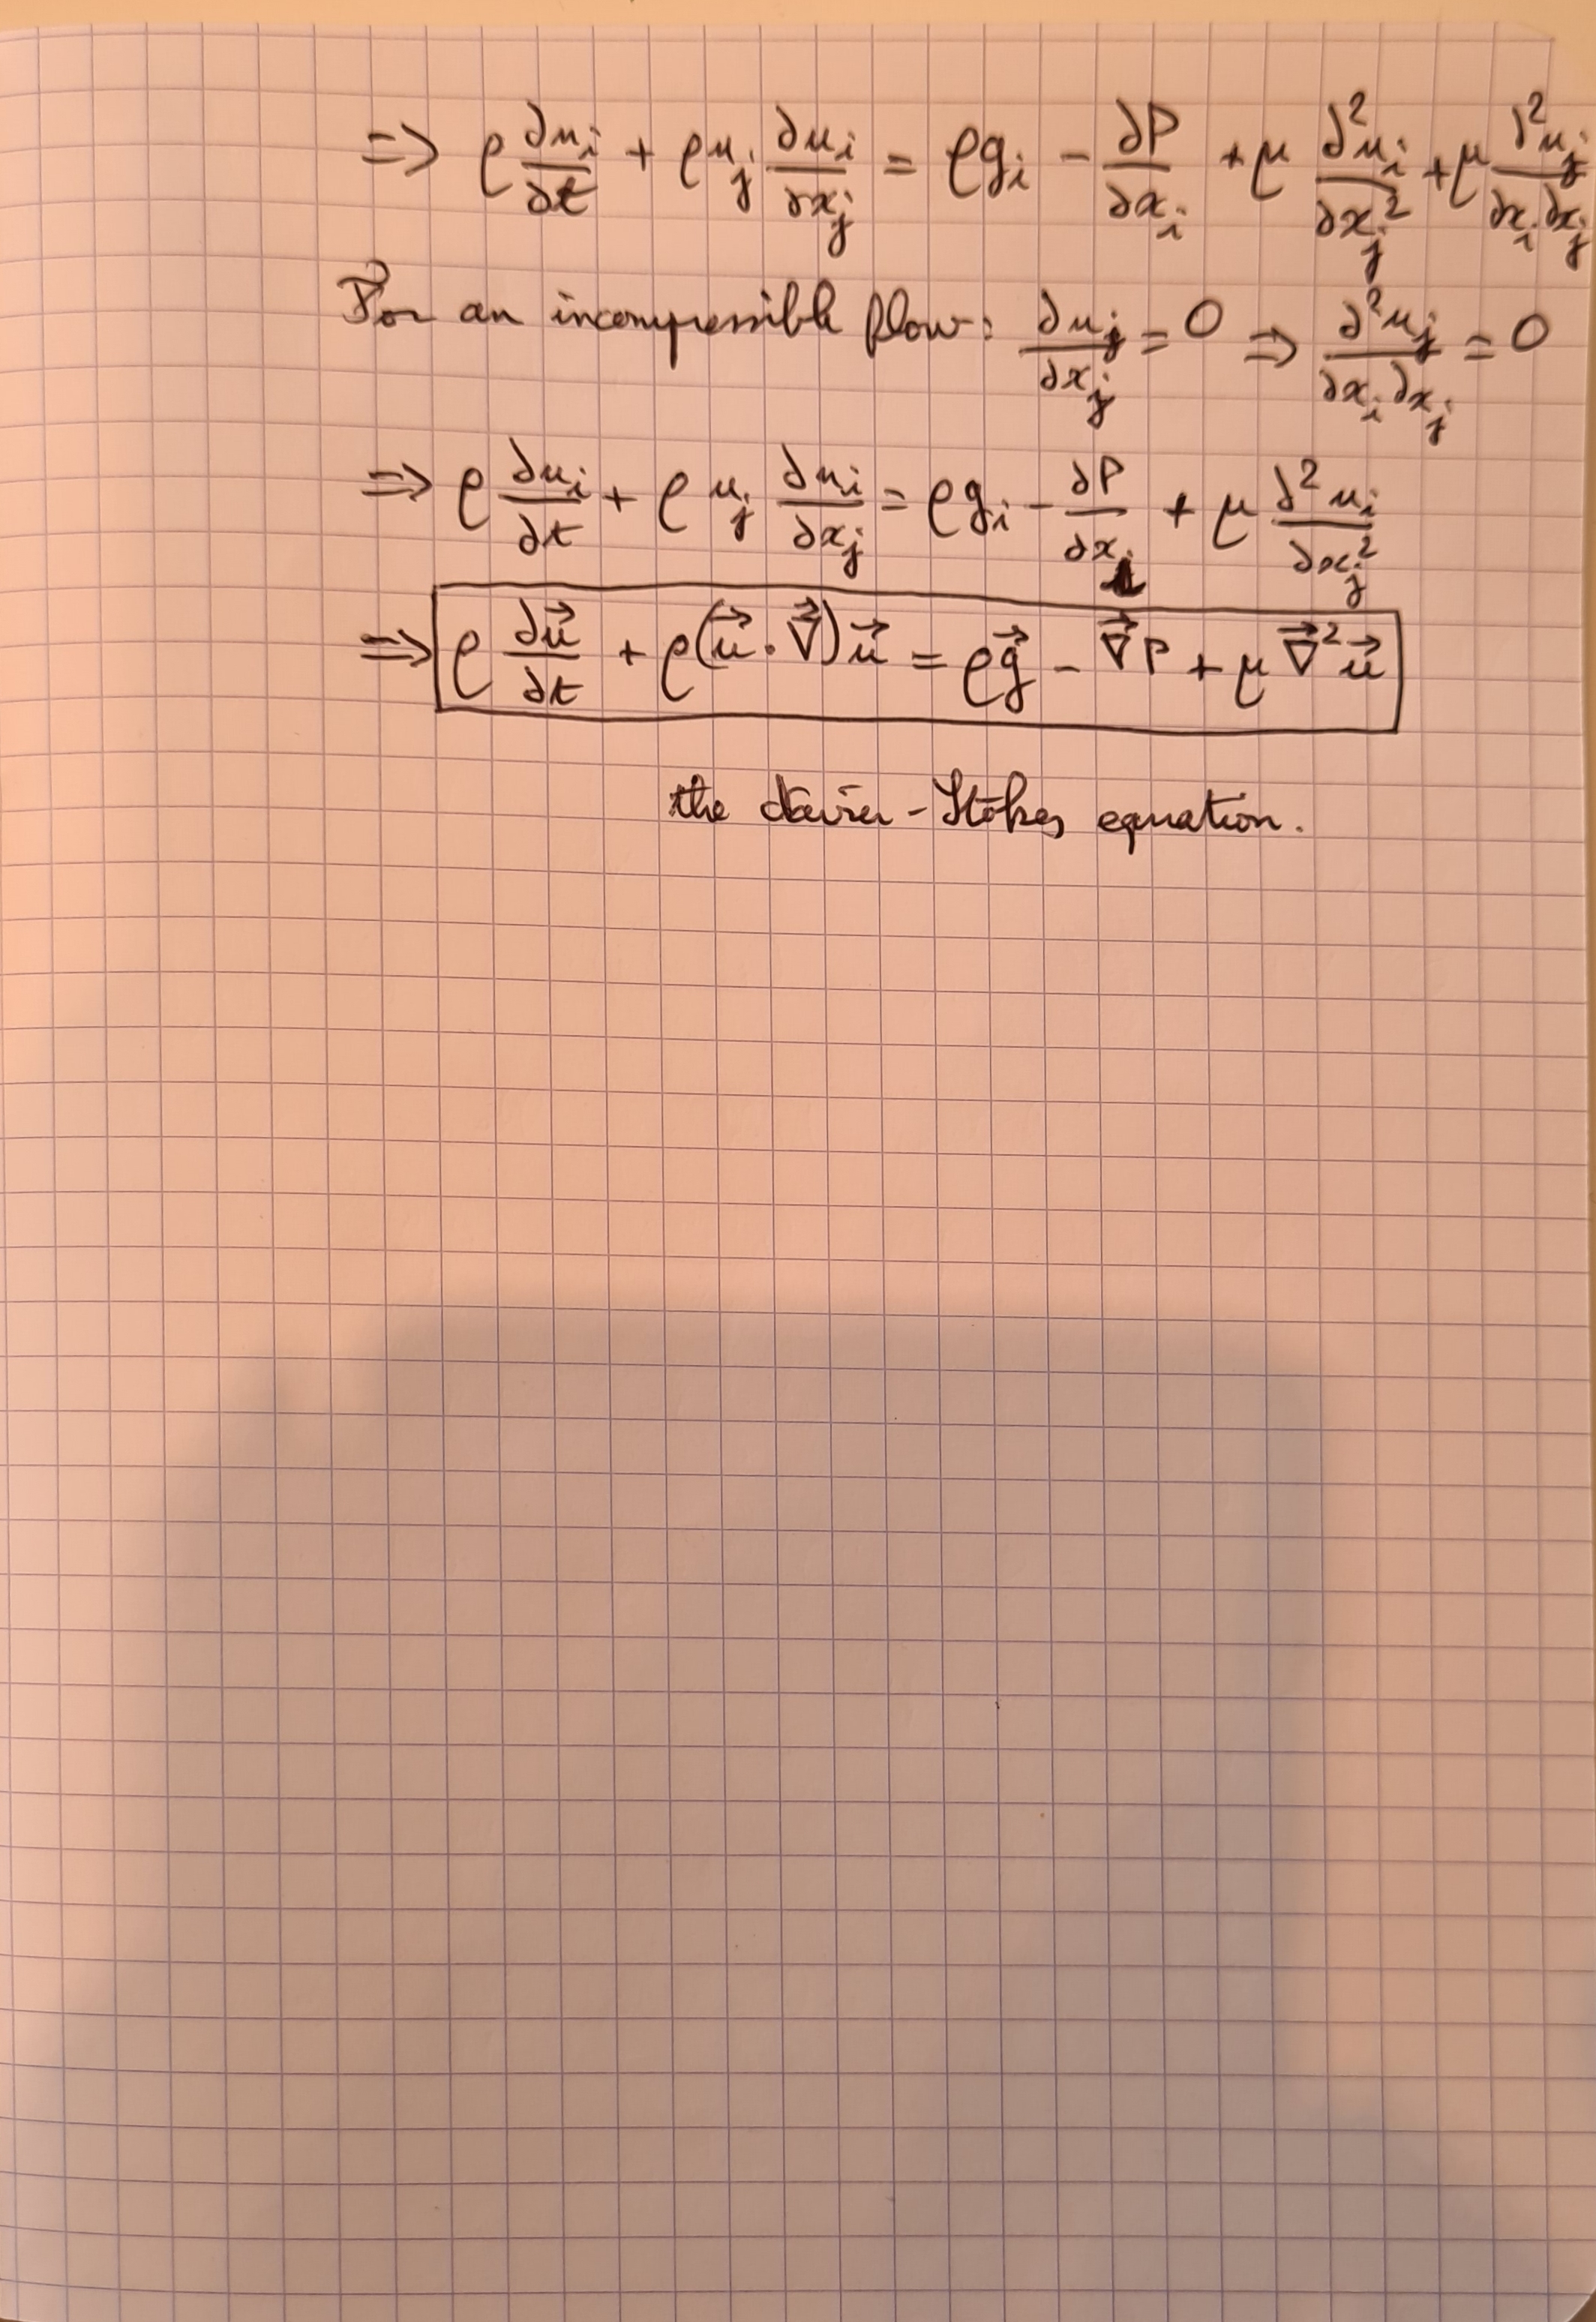 => ρ ∂u_i/∂t + ρ u_j ∂u_i/∂x_j = ρg_i - ∂P/∂x_i + μ ∂²u_i/∂x_j² + μ ∂²u_j/∂x_i∂x_j
For an incompressible flow: ∂u_j/∂x_j = 0 => ∂²u_j/∂x_i∂x_j = 0
=> ρ ∂u_i/∂t + ρ u_j ∂u_i/∂x_j = ρg_i - ∂P/∂x_i + μ ∂²u_i/∂x_j²
=> ρ ∂u⃗/∂t + ρ(u⃗·∇⃗)u⃗ = ρg⃗ - ∇⃗P + μ∇⃗²u⃗
the Navier-Stokes equation.